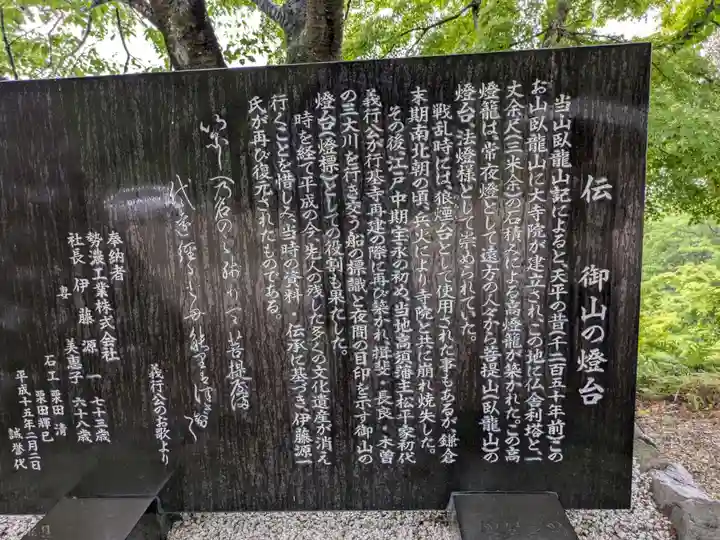 伝 御山の燈台
当山臥龍山記によると、天平の昔千二百五十年前この
お山臥龍山に大寺院が建立され、この地に仏舎利塔と一
丈余尺(三米余)の石積みによる高燈籠が築かれた。この高
燈籠は、常夜燈として遠方の人々から菩提山(臥龍山)の
燈台、法燈様として崇められていた。
戦乱時には、狼煙台として使用された事もあるが、鎌倉
末期南北朝の頃、兵火により寺院と共に崩れ焼失した。
その後、江戸中期宝永の初め、当地高須藩主松平家初代
義行公が行基寺再建の際に再び築かれ、揖斐・長良・木曽
の三大川を行き交う船の標識と夜間の目印を示す御山の
燈台(燈標)としての役割も果たした。
時を経て平成の今、先人の残した多くの文化遺産が消え
行くことを惜しみ、当時の資料・伝承に基づき、伊藤源一
氏が再び復元されたものである。
義行公のお歌より
奉納者
勢濃工業株式会社
社長 伊藤源一 七十三歳
妻 美恵子 六十八歳
石工 栗田 清
栗田輝巳
平成十五年二月二日
誠誉代